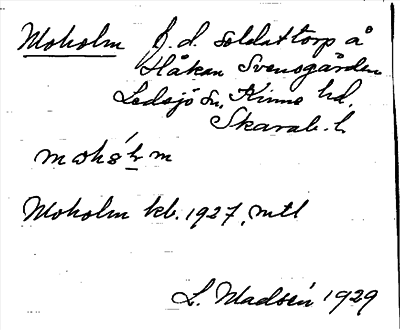 Moholm f.d. soldattorp å
Håkan Svensgården
Ledsjö sn, Kinne hd.
Skarab. l.
Moholm kb. 1927, mtl
L. Madsén 1929